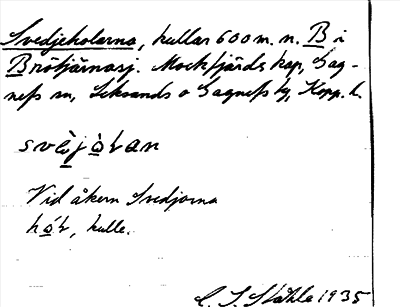 Svedjeholarna, kullar 600 m. n. B i
Brötjärnasj. Mockfjärds kap, Gag-
nefs sn, Leksands o Gagnefs tg, Kopp. l.
svèjọ̀ḷan
Vid åkern Svedjorna
họ́ḷ, kulle.
C. I. Ståhle 1935